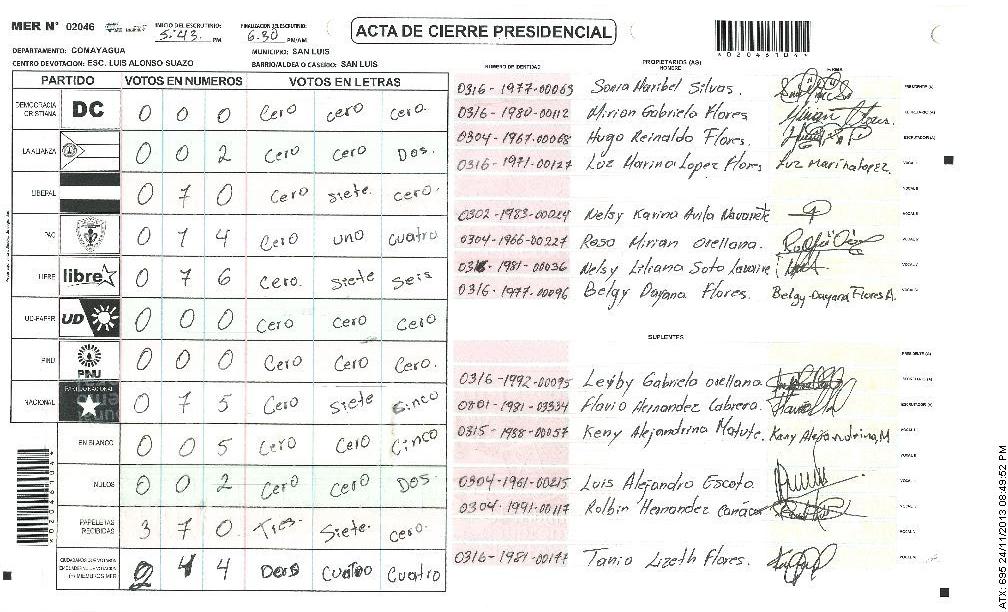 MER N° 02046
INICIO DEL ESCRUTINIO: 5:43. PM
FINALIZACION DEL ESCRUTINIO: 6:30 PM/AM
ACTA DE CIERRE PRESIDENCIAL
*0204610 4*
DEPARTAMENTO: COMAYAGUA
MUNICIPIO: SAN LUIS
CENTRO DE VOTACION: ESC. LUIS ALONSO SUAZO
BARRIO/ALDEA O CASERIO: SAN LUIS
PARTIDO VOTOS EN NUMEROS VOTOS EN LETRAS
DEMOCRACIA CRISTIANA DC 0 0 0 Cero cero cero.
LA ALIANZA 0 0 2 Cero Cero Dos.
LIBERAL 0 7 0 Cero siete. cero.
PAC 0 1 4 Cero uno cuatro
LIBRE libre 0 7 6 Cero. siete seis
UD-FAPER UD 0 0 0 Cero Cero Cero
PINU PNU 0 0 0 Cero Cero. Cero.
NACIONAL PARTIDO NACIONAL 0 7 5 Cero Siete Cinco
EN BLANCO 0 0 5 Cero Cero Cinco
NULOS 0 0 2 Cero Cero Dos.
PAPELETAS RECIBIDAS 3 7 0 Tres. Siete. cero.
2 4 4 Dos Cuatro Cuatro
NUMERO DE IDENTIDAD
PROPIETARIOS (AS)
NOMBRE
FIRMA
0316-1977-00063 Sonia Maribel Silvas. PRESIDENTE (A)
0316-1980-00112 Mirian Gabriela Flores SECRETARIO (A)
0304-1967-00068 Hugo Reinaldo Flores. ESCRUTADOR (A)
0316-1971-00127 Luz Marina Lopez Flores Luz Marina Lopez. VOCAL
VOCAL
0302-1983-00024 Nelsy Karina Avila Navarrete VOCAL
0304-1966-00227 Rosa Mirian Orellana. VOCAL
1981-00036 Nelsy Liliana Soto VOCAL
0316-1977-00096 Belgy Dayana Flores. Belgy Dayana Flores A. VOCAL
SUPLENTES
PRESIDENTE (A)
0316-1992-00095 Leyby Gabriela orellana SECRETARIO (A)
0801-1981-03334 Flavio Hernandez Cabrera. ESCRUTADOR (A)
0315-1988-00057 Keny Alejandrina Matute. Keny Alejandrina, M VOCAL
VOCAL
0304-1961-00215 Luis Alejandro Escoto VOCAL
0304-1991-00117 Rolbin Hernandez VOCAL
0316-1981-00177 Tania Lizeth Flores. VOCAL
ATX: 695 24/11/2013 08:49:52 PM